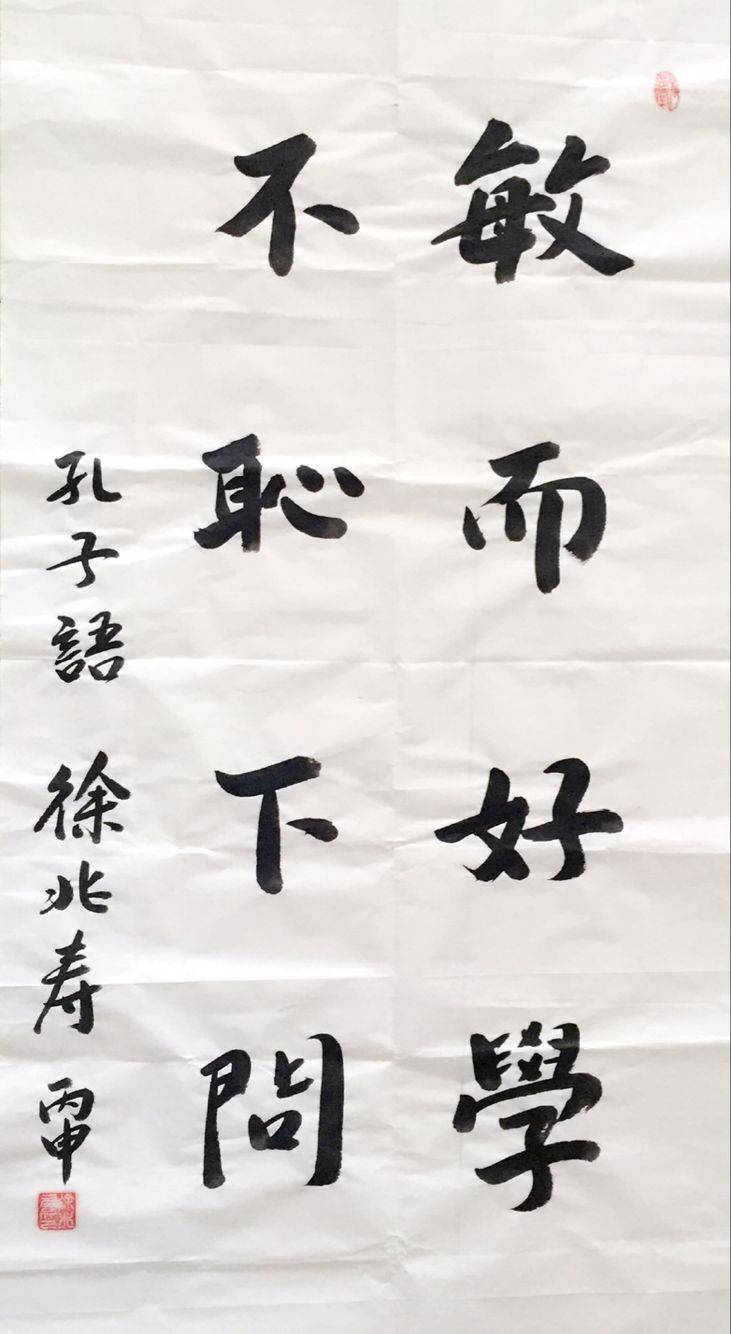 敏而好學
不恥下問
孔子語 徐兆寿 丙申